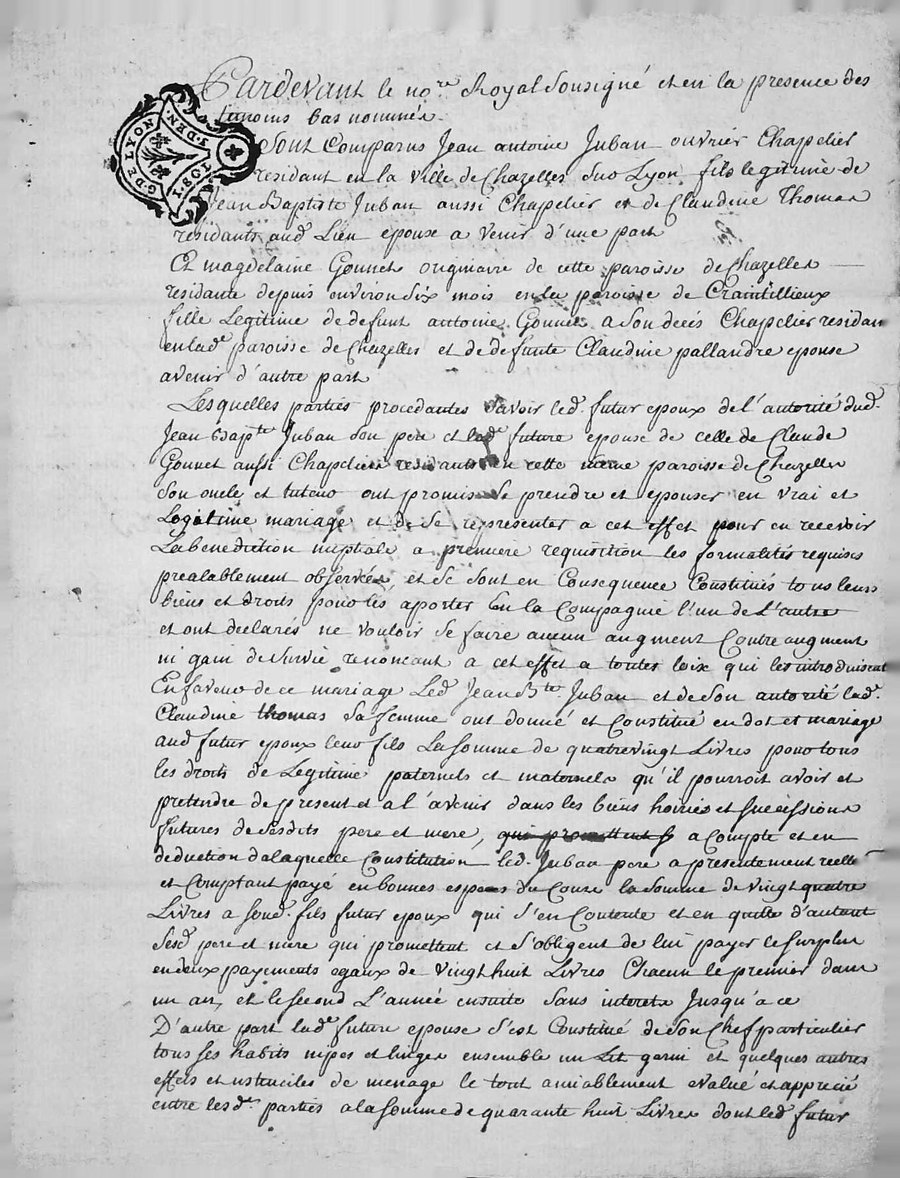 Pardevant le no.re Royal Soussigné et en la presence des
temoins bas nommés
G. DE LYON
1. DEN.
1.SOL
Sont Comparus Jean antoine Juban ouvrier Chapelier
residant en la Ville de Chazelles Sur Lyon fils legitime de
Jean Baptiste Juban aussi Chapelier et de Claudine Thomas
residants aud. Lieu epoux a venir d'une part
Et magdelaine Gonnet originaire de cette paroisse de Chazelles
residante depuis environ Six mois en la paroisse de Craintillieux
fille Legitime de defunt antoine Gonnet a Son decés Chapelier residan
en lad.e paroisse de Chazelles et de defunte Claudine pallandre epouse
avenir d'autre part
Lesquelles parties procedantes Savoir led. futur epoux de l'autorité dud.
Jean Bap.te Juban Son pere et lad.e future epouse de celle de Claude
Gonnet aussi Chapelier residant en cette meme paroisse de Chazelles
Son oncle et tuteur ont promis Se prendre et epouser en vrai et
Legitime mariage et de Se representer a cet effet pour en recevoir
La benediction nuptiale a premiere requisition les formalités requises
prealablement observées, et Se Sont en Consequence Constitués tous leurs
biens et droits pour les aporter En la Compagnie l'un de L'autre
et ont declarés ne vouloir Se faire aucun augment Contre augment
ni gain de Survie renoncant a cet effet a toutes loix qui les introduisent
En faveur de ce mariage Led. Jean B.te Juban et de Son autorité lad.
Claudine thomas Sa femme ont donné et Constitué en dot et mariage
aud futur epoux leur fils La Somme de quatrevingt Livres pour tous
les droits de Legitime paternels et maternels qu'il pourroit avoir et
pretendre de present et a l'avenir dans les biens hoiries et successions
futures de Sesdits pere et mere, qui promettent S a Compte et en
deduction de laquelle Constitution led. Juban pere a presentement reelle
et Comptant payé en bonnes especes du Cours la Somme de Vingt quatre
Livres a Soud. fils futur epoux qui S'en Contente et en quitte d'autant
Sesd. pere et mere qui promettent et S'obligent de lui payer le Surplus
en deux payements egaux de Vingt huit Livres Chacun le premier dans
un an, et le Second L'année ensuite Sans interets Jusqu'a ce
D'autre part lad.e future epouse S'est Constitué de Son Chef particulier
tous Ses habits nipes et linges ensemble un Lit garni et quelques autres
effets et ustenciles de menage le tout amiablement evalué et apprecié
entre lesd.e parties a la Somme de quarante huit Livres dont led. futur